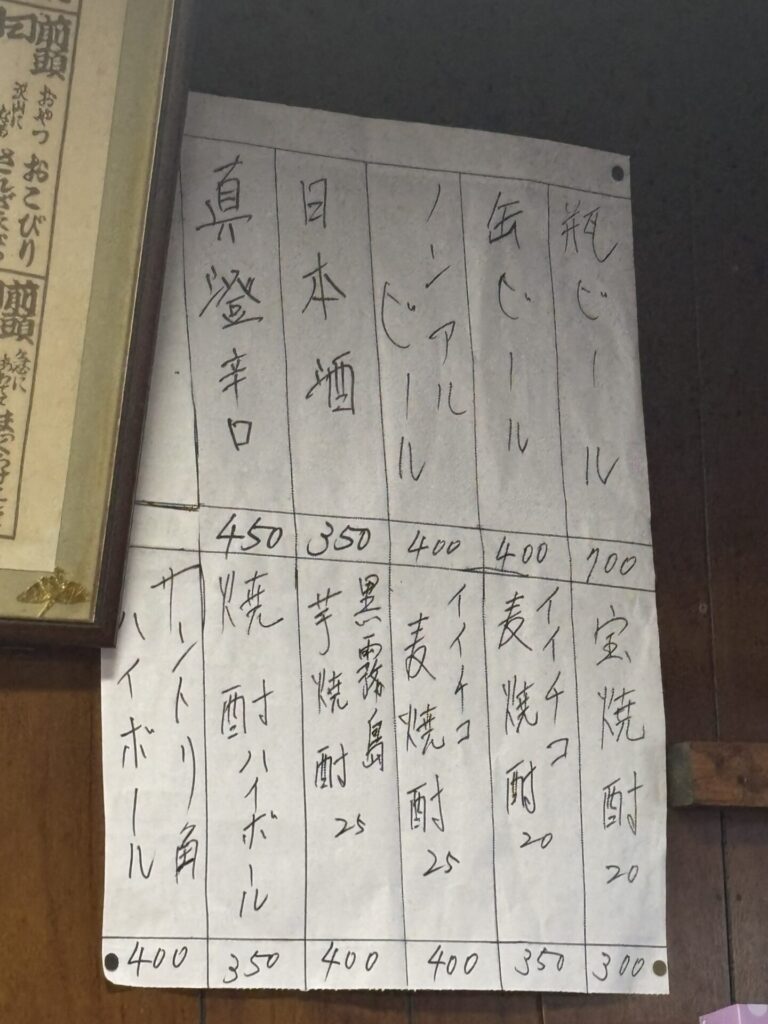 瓶ビール
700
缶ビール
400
ノンアル
ビール
400
日本酒
350
真澄辛口
450
宝焼酎20
300
イイチコ
麦焼酎20
350
イイチコ
麦焼酎25
400
黒霧島
芋焼酎25
400
焼酎ハイボール
350
サントリー角
ハイボール
400
前頭
おやつ
おこびり
沢山に
前頭